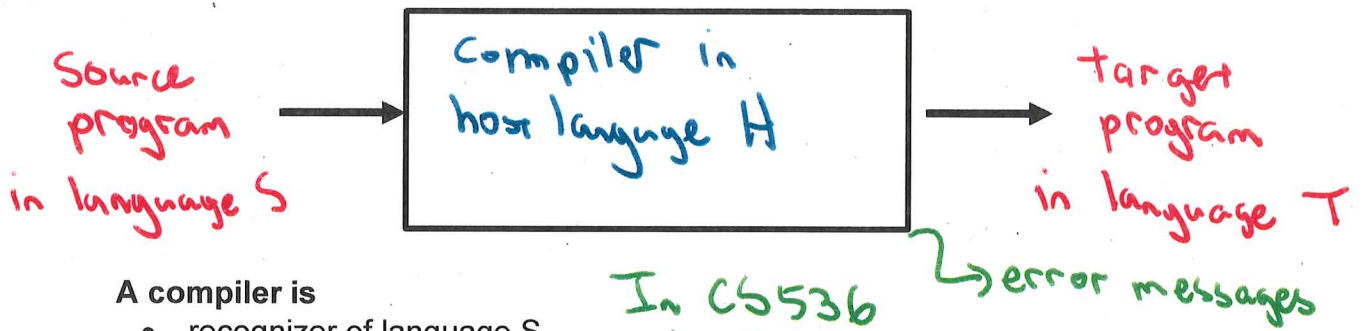 Source
program
in language S
Compiler in
host language H
target
program
in language T
error messages
In CS536
A compiler is
• recognizer of language S